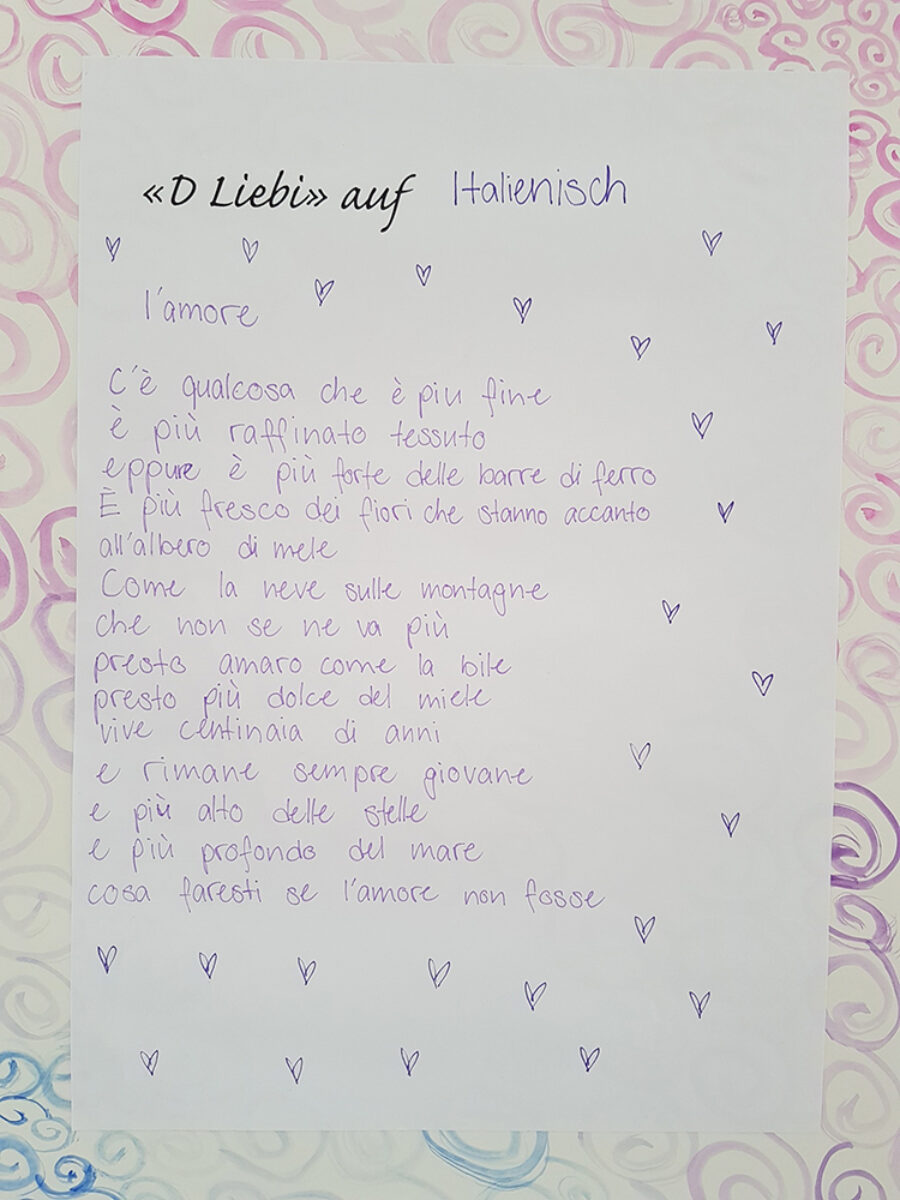 «D Liebi» auf Italienisch
l'amore
C'è qualcosa che è piu fine
è più raffinato tessuto
eppure è più forte delle barre di ferro
È più fresco dei fiori che stanno accanto
all'albero di mele
Come la neve sulle montagne
che non se ne va più
presto amaro come la bile
presto più dolce del miele
vive centinaia di anni
e rimane sempre giovane
e più alto delle stelle
e più profondo del mare
cosa faresti se l'amore non fosse